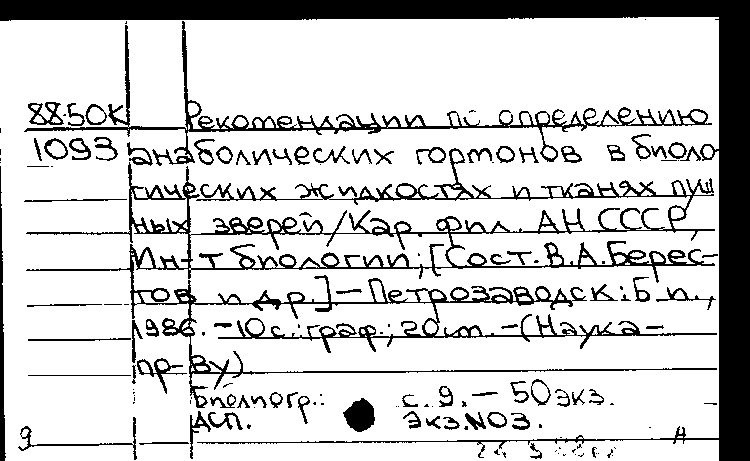 88-50К Рекомендации по определению
1093 анаболических гормонов в биоло-
гических жидкостях и тканях пуш-
ных зверей/Кар. фил. АН СССР,
Ин-т биологии; [Сост. В.А.Берес-
тов и др.]—Петрозаводск: Б.и.,
1986. —10с.: граф.; 20см. —(Наука—
пр-ву)
Библиогр.: с. 9. — 50 экз.
АСП. Экз.№03.
9 А